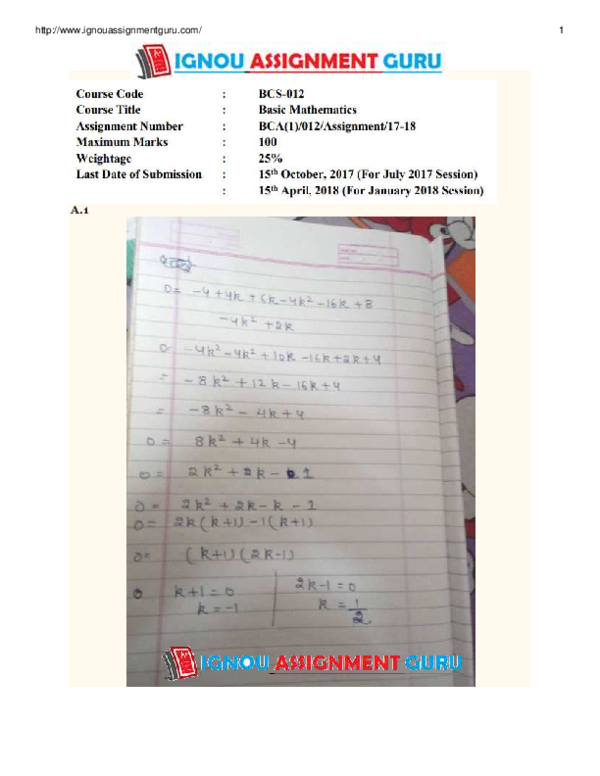 http://www.ignouassignmentguru.com/ 1
IGNOU ASSIGNMENT GURU
Course Code : BCS-012
Course Title : Basic Mathematics
Assignment Number : BCA(1)/012/Assignment/17-18
Maximum Marks : 100
Weightage : 25%
Last Date of Submission : 15th October, 2017 (For July 2017 Session)
: 15th April, 2018 (For January 2018 Session)
A.1
0= -4+4k+6k-4k²-16k+8
-4k²+2k
0= -4k²-4k²+10k-16k+2k+4
= -8k²+12k-16k+4
= -8k²-4k+4
0= 8k²+4k-4
0= 2k²+k-1
0= 2k²+2k-k-1
0= 2k(k+1)-1(k+1)
0= (k+1)(2k-1)
0 k+1=0 2k-1=0
k=-1 k=1/2
IGNOU ASSIGNMENT GURU